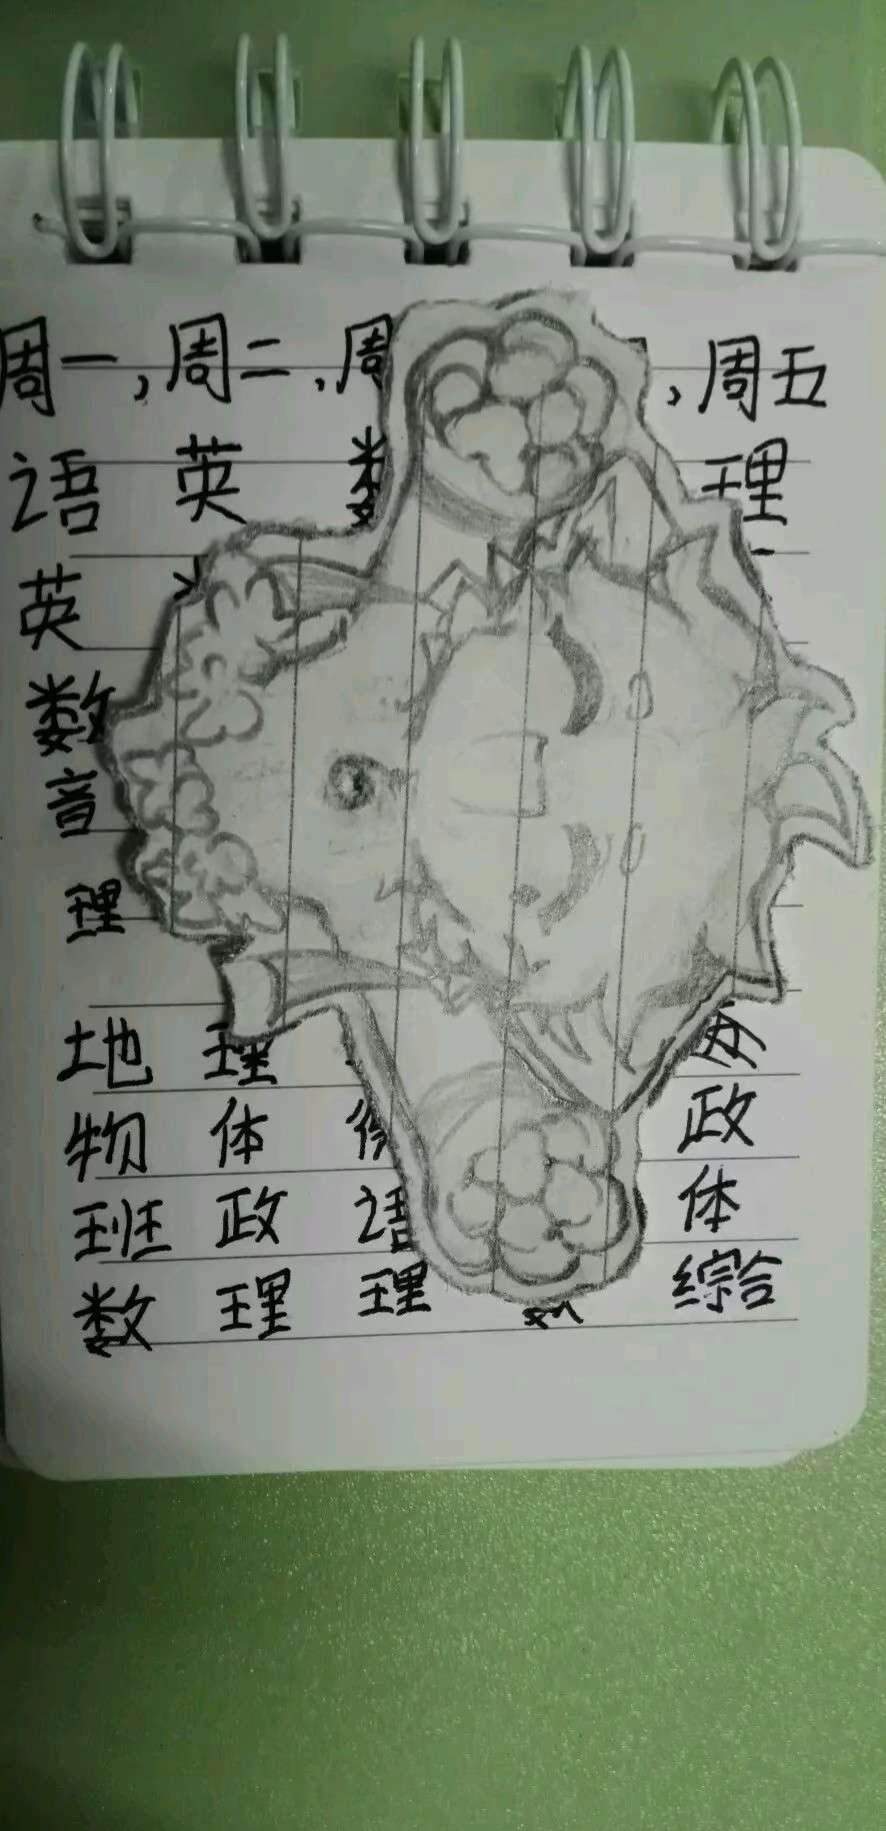 周一,周二,周 ,周五
语 英 数 理
英
数
音
理
地 理
物 体 政
班 政 语 体
数 理 理 综合